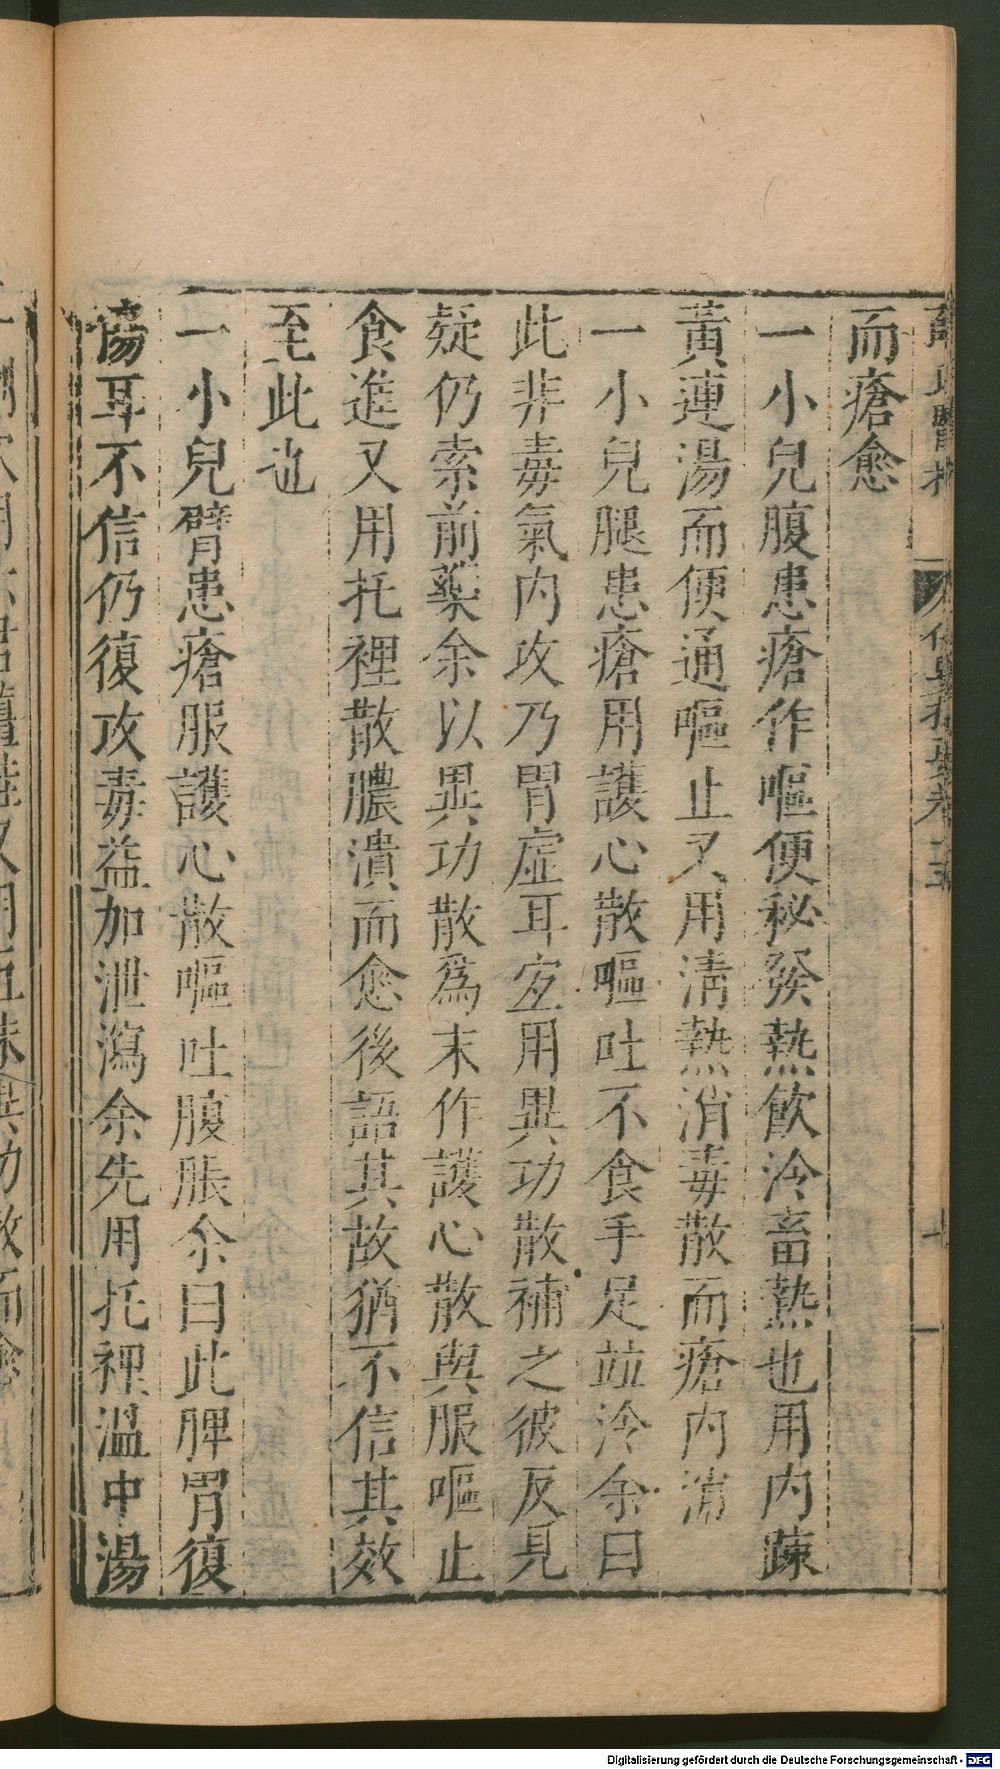 而瘡愈
一小兒腹患瘡作嘔便秘發熱飲冷畜熱也用内疎
黃連湯而便通嘔止又用清熱消毒散而瘡内消
一小兒腿患瘡用護心散嘔吐不食手足竝冷余曰
此非毒氣内攻乃胃虛耳宐用異功散補之彼反見
疑仍索前藥余以異功散爲末作護心散與服嘔止
食進又用托裡散膿潰而愈後語其故猶不信其效
至此也
一小兒臂患瘡服護心散嘔吐腹脹余曰此脾胃復
傷耳不信仍復攻毒益加泄瀉余先用托裡溫中湯
Digitalisierung gefördert durch die Deutsche Forschungsgemeinschaft - DFG